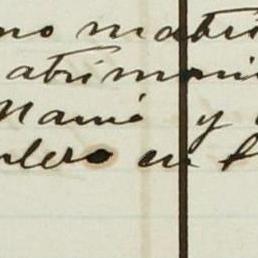 no matri
atrimoni
Mamó y
ulero en